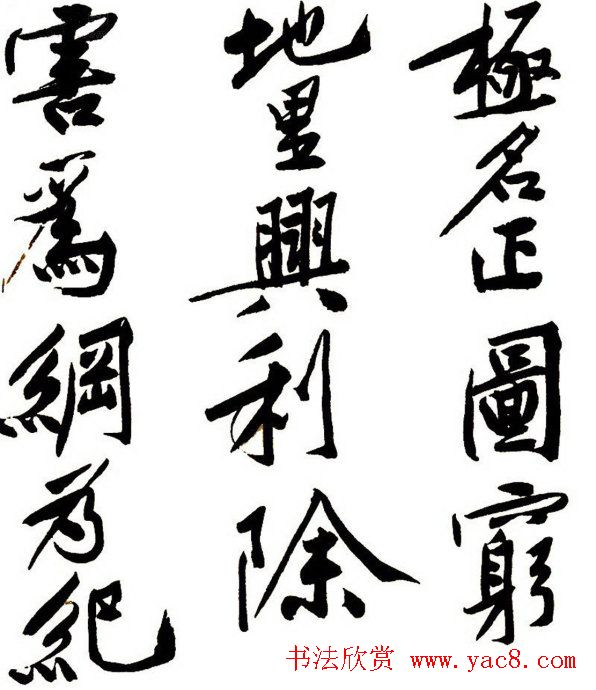 極名正圖窮
地里興利除
害為綱為紀
书法欣赏 www.yac8.com